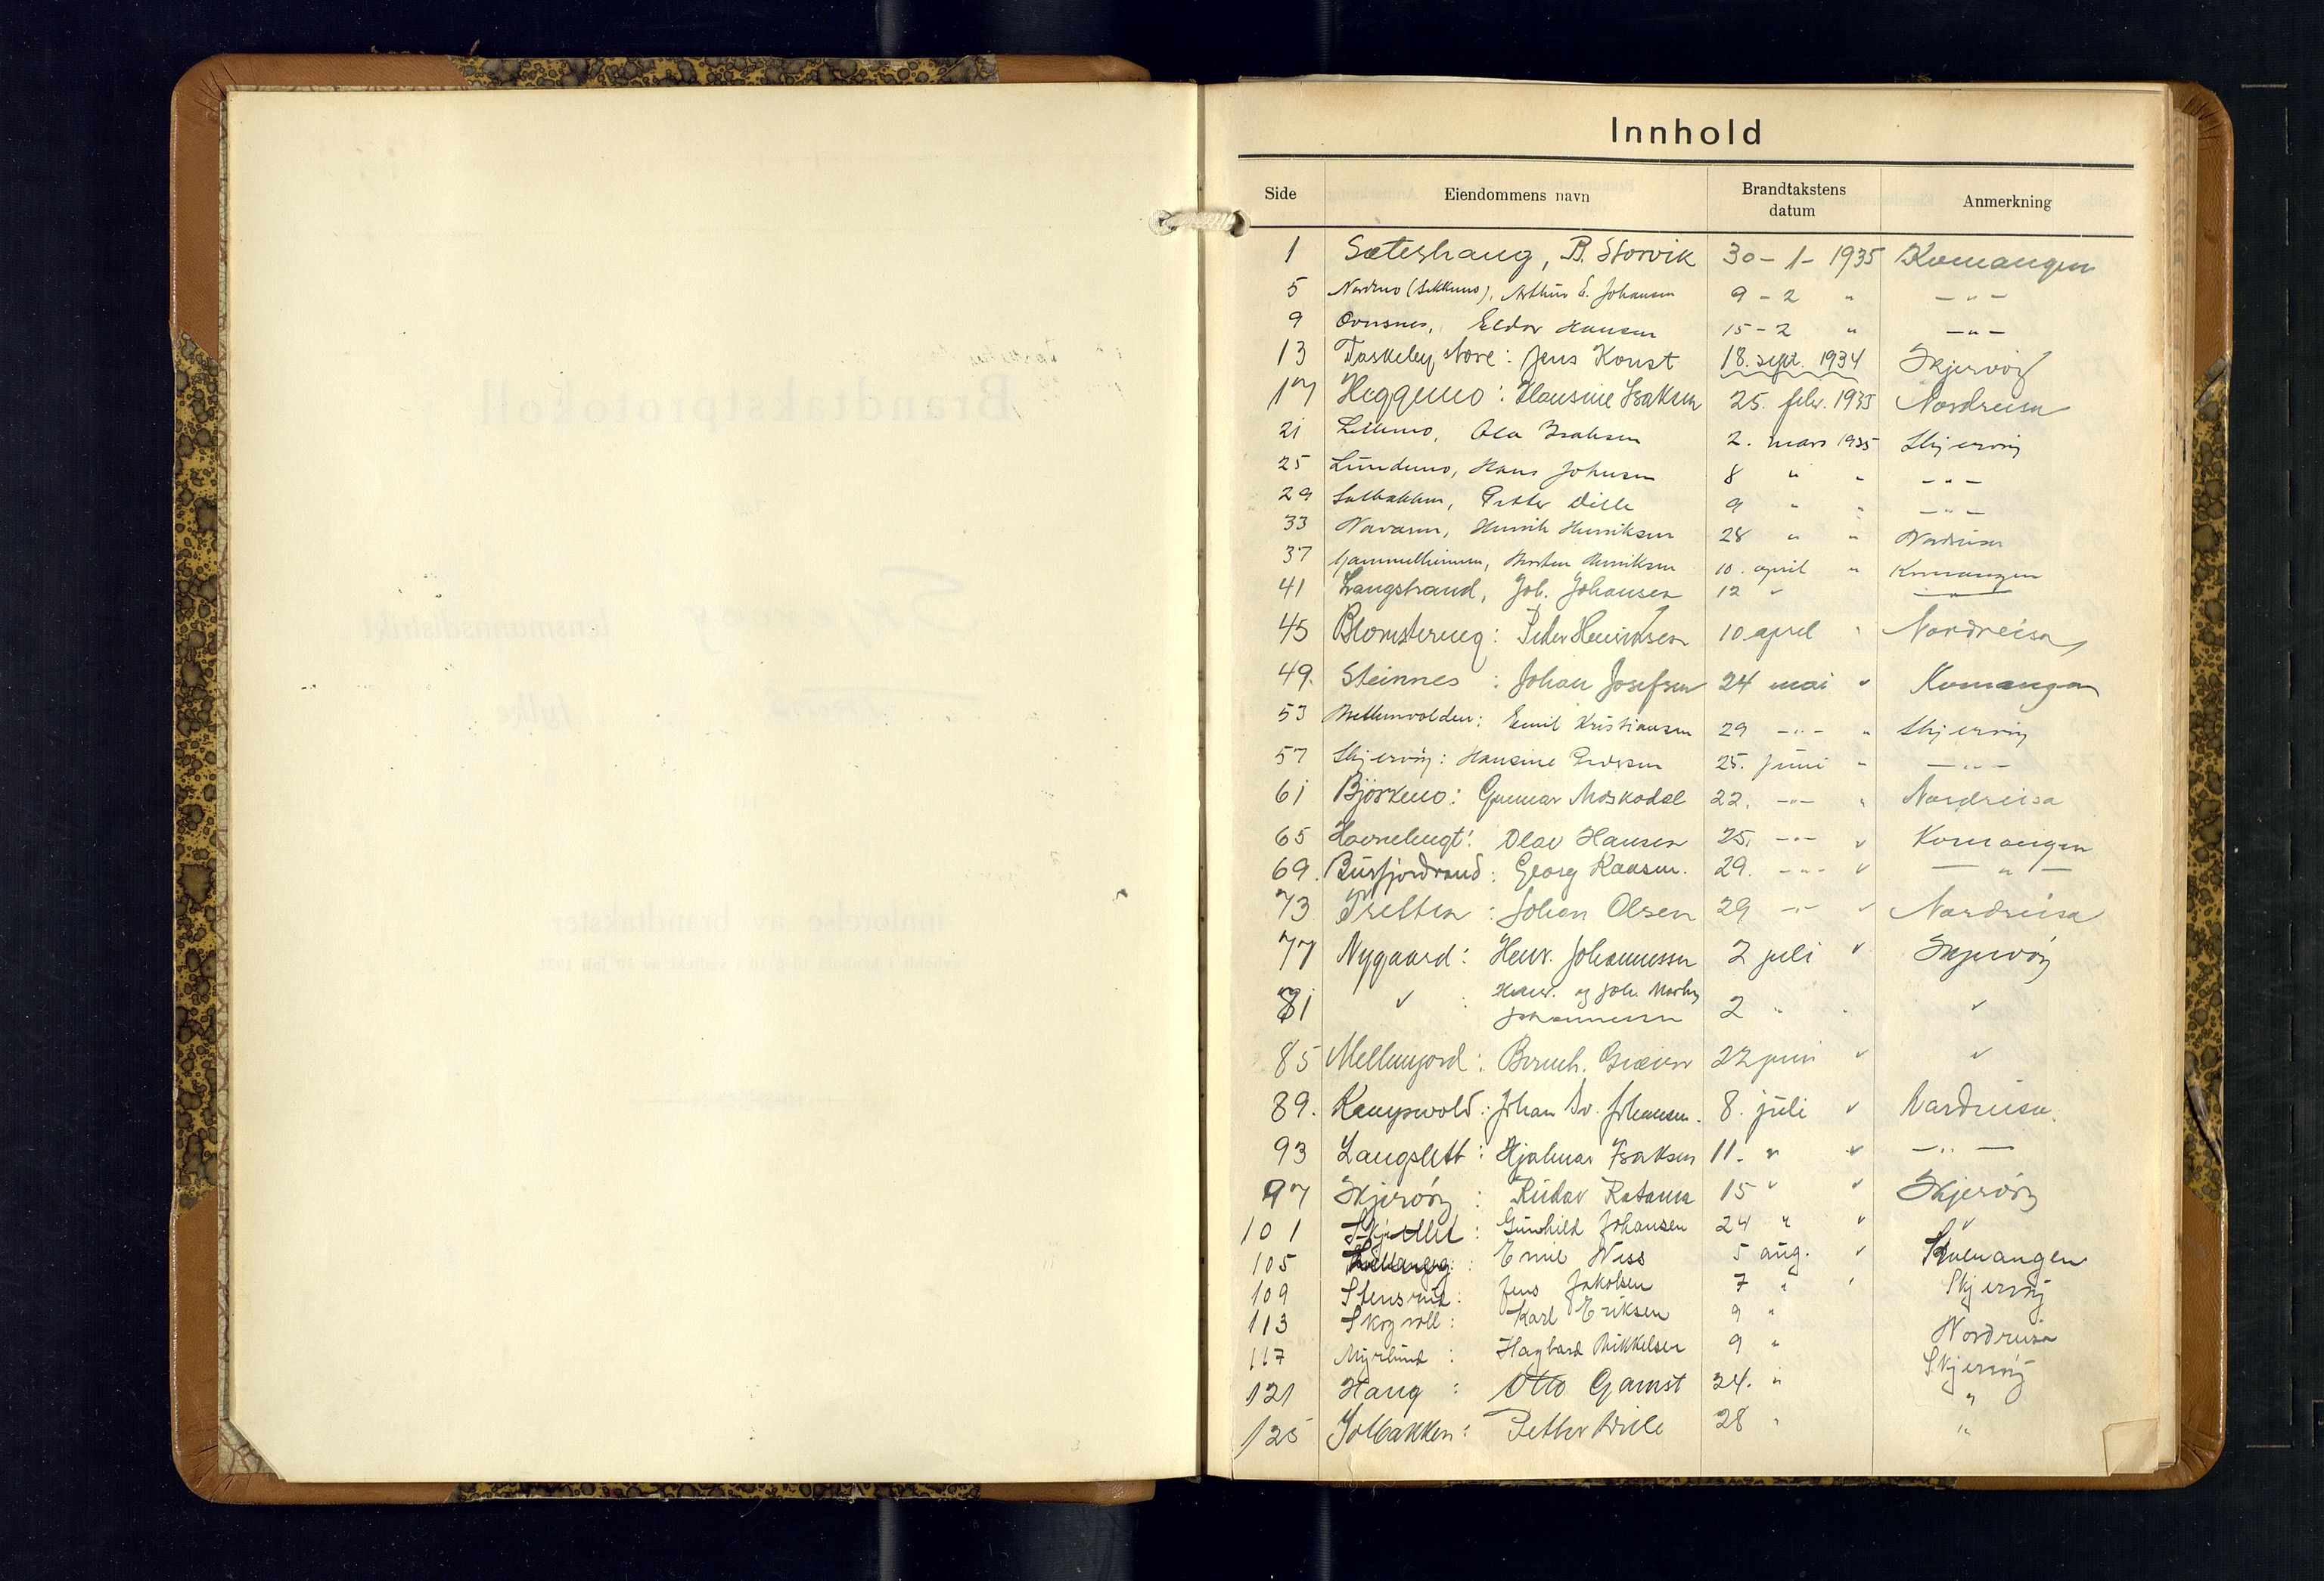 Innhold
Side Eiendommens navn Brandtakstens datum Anmerkning
1 Sæteshaug, B. Storvik 30 - 1 - 1935 Kvenangen
5 Nordmo (Sekkemo), Arthur E. Johansen 9 - 2 " - " -
9 Eldor Hansen 15 - 2 " - " -
13 Taskeby Store : Jens Konst 18. sept. 1934 Skjervöy
17 Heggemo : Hansine Isaksen 25. febr. 1935 Nordreisa
21 Ola Isaksen 2. mars 1935 Skjervöy
25 Lundemo, Hans Johnsen 8 " " - " -
29 Solbakken, Petter Dille 9 " " - " -
33 Navaren, Henrik Henriksen 28 " " Nordreisa
37 Gammelheimen, Morten Henriksen 10. april " Kvenangen
41 Langstrand, Joh. Johansen 12 " "
45 Blomstereng : Peder Henriksen 10 april " Nordreisa
49. Steinnes : Johan Josefsen 24 mai " Kvenangen
53 Mellemvolden : Emil Kristiansen 29 - " - " Skjervöy
57 Skjervöy : Hansine Pedersen 25. juni " - " -
61 Björkmo : Gunnar Moskodal 22. - " - " Nordreisa
65 Havnebugt : Olav Hansen 25. - " - " Kvenangen
69. Burfjordrand : Georg Kaasen. 29. - " - " - " -
73 Tretten : Johan Olsen 29 - " - " Nordreisa
77 Nygaard : Henr. Johannessen 2 juli " Skjervöy
81 " : Henr. og Joh. Johannessen 2 " " "
85 Mellemjord : Bernh. Græier 22 juni " "
89. Kempevold : Johan Johansen. 8. juli " Nordreisa.
93 Langslett : Hjalmar Isaksen 11. " " - " -
97 Skjervöy : Reidar Ratama 15 " " Skjervöy
101 Skjellet : Gunhild Johansen 24 " " "
105 : Emil Niss 5 aug. " Kvenangen
109 Stensrud : Jens Jakobsen 7 " " Skjervöy
113 Skogvoll : Karl Eriksen 9 " Nordreisa
117 Myrlund : Hagbard Mikkelsen 9 " Skjervöy
121 Haug : Otto Gamst 24. " "
125 Solbakken : Petter Dille 28 " "